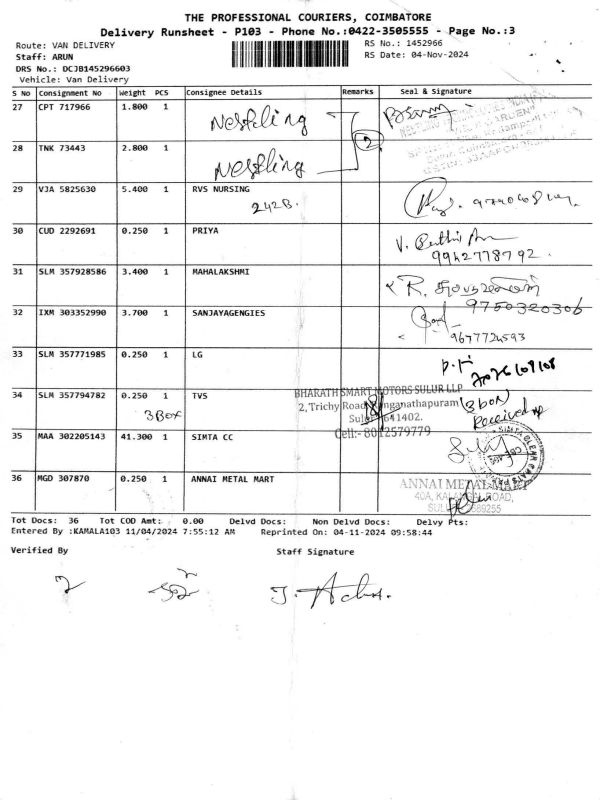 THE PROFESSIONAL COURIERS, COIMBATORE
Delivery Runsheet - P103 - Phone No.:0422-3505555 - Page No.:3
Route: VAN DELIVERY
RS No.: 1452966
Staff: ARUN
RS Date: 04-Nov-2024
DRS No.: DCJB145296603
Vehicle: Van Delivery
S No Consignment No Weight PCS Consignee Details Remarks Seal & Signature
27 CPT 717966 1.800 1 Nestling
28 TNK 73443 2.800 1 Nestling
2
29 VJA 5825630 5.400 1 RVS NURSING
242B.
30 CUD 2292691 0.250 1 PRIYA
9942778792.
31 SLM 357928586 3.400 1 MAHALAKSHMI
9750320306
32 IXM 303352990 3.700 1 SANJAYAGENGIES
9677724593
33 SLM 357771985 0.250 1 LG
34 SLM 357794782 0.250 1 TVS
3 Box
BHARATH SMART MOTORS SULUR LLP
2, Trichy Road, Ranganathapuram
Sulur - 641402.
Cell:- 8012579779
(3 box)
Received
35 MAA 302205143 41.300 1 SIMTA CC
36 MGD 307870 0.250 1 ANNAI METAL MART
ANNAI METAL MART
40A, KALANGAL ROAD,
Tot Docs: 36 Tot COD Amt: 0.00 Delvd Docs: Non Delvd Docs: Delvy Pts:
Entered By :KAMALA103 11/04/2024 7:55:12 AM Reprinted On: 04-11-2024 09:58:44
Verified By Staff Signature